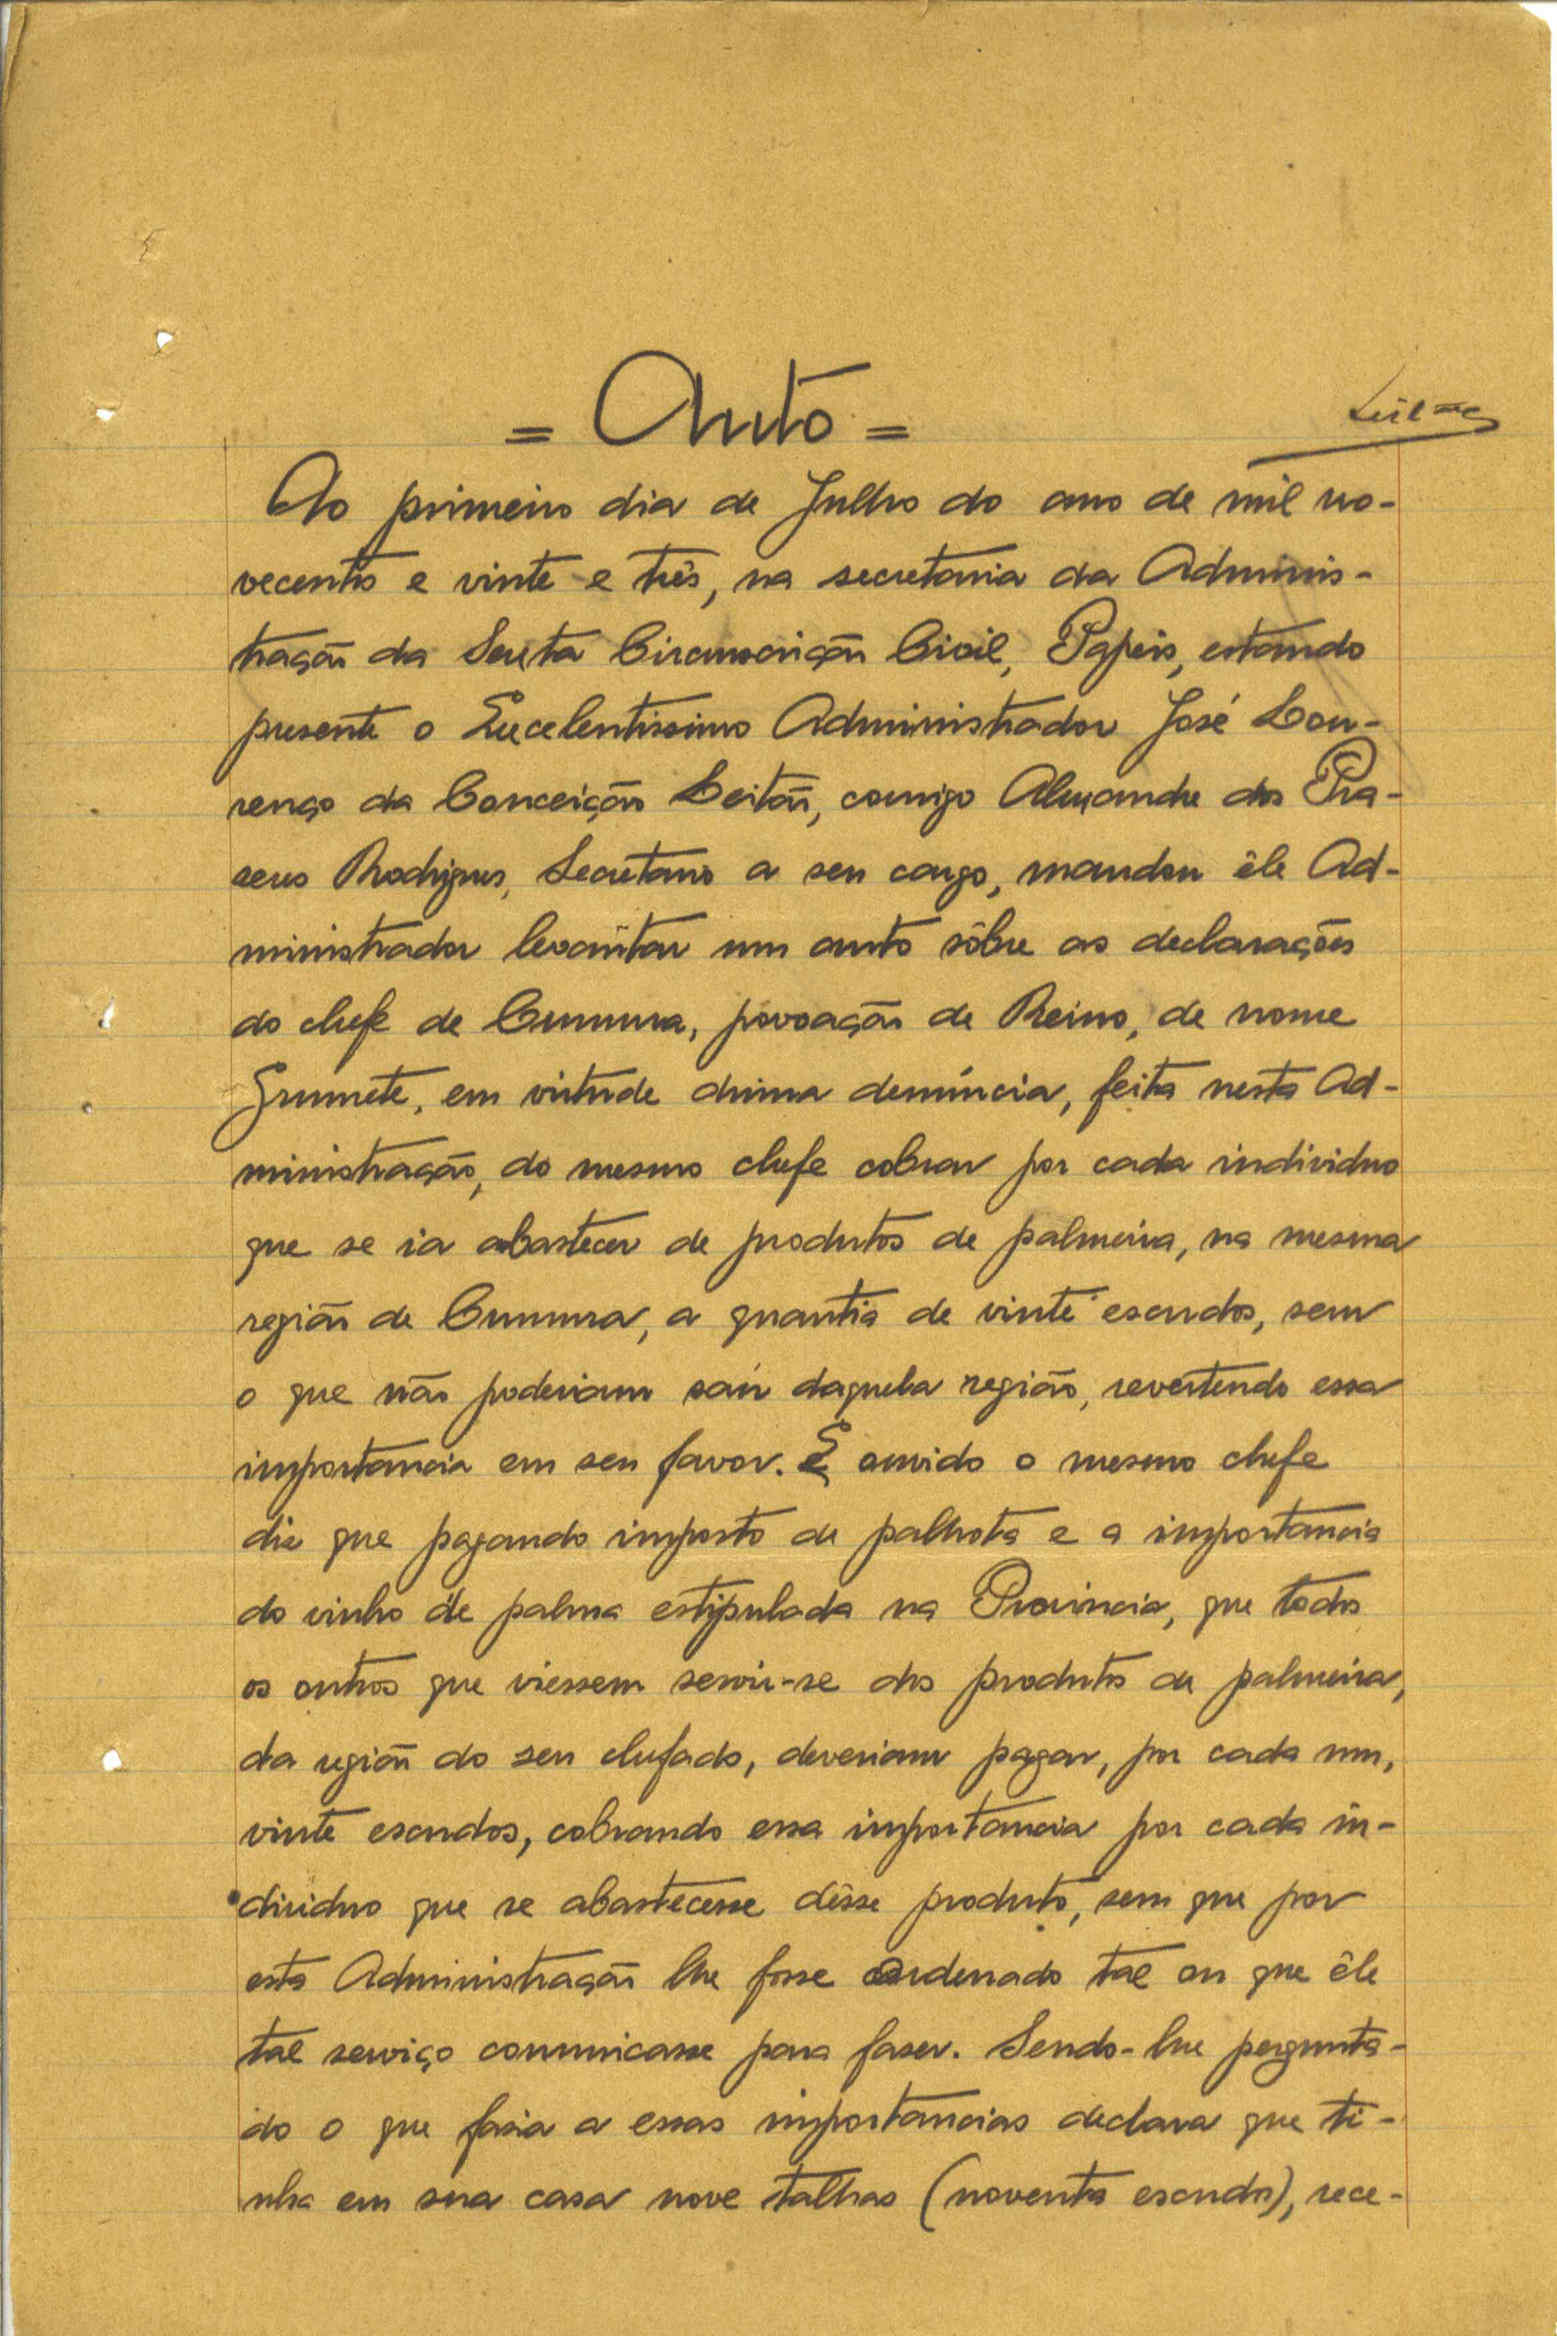 = Auto =
Leitão
Ao primeiro dia de Julho do ano de mil no-
vecentos e vinte e três, na secretaria da Adminis-
tração da Sexta Circunscrição Civil, Papeis, estando
presente o Excelentissimo Administrador José Lou-
renço da Conceição Leitão, comigo Alexandre dos Pra-
seres Rodrigues, Secretario a seu cargo, mandou êle Ad-
ministrador levantar um auto sôbre as declarações
do chefe de Cumura, povoação de Reino, de nome
Grumete, em virtude duma denúncia, feita nesta Ad-
ministração, do mesmo chefe cobrar por cada individuo
que se ia abastecer de produtos de palmeira, na mesma
região de Cumura, a quantia de vinte escudos, sem
o que não poderiam sair daquela região, revertendo essa
importancia em seu favor. E ouvido o mesmo chefe
diz que pagando imposto de palhota e a importancia
do vinho de palma estipulada na Provincia, que todos
os outros que viessem servir-se dos produtos de palmeira,
da região do seu chefado, deveriam pagar, por cada um,
vinte escudos, cobrando essa importancia por cada in-
dividuo que se abastecesse dêsse produto, sem que por
esta Administração lhe fosse ordenado tal ou que êle
tal serviço comunicasse para faser. Sendo-lhe pergunta-
do o que fasia a essas importancias declara que ti-
nha em sua casa nove talhas (noventa escudos), rece-